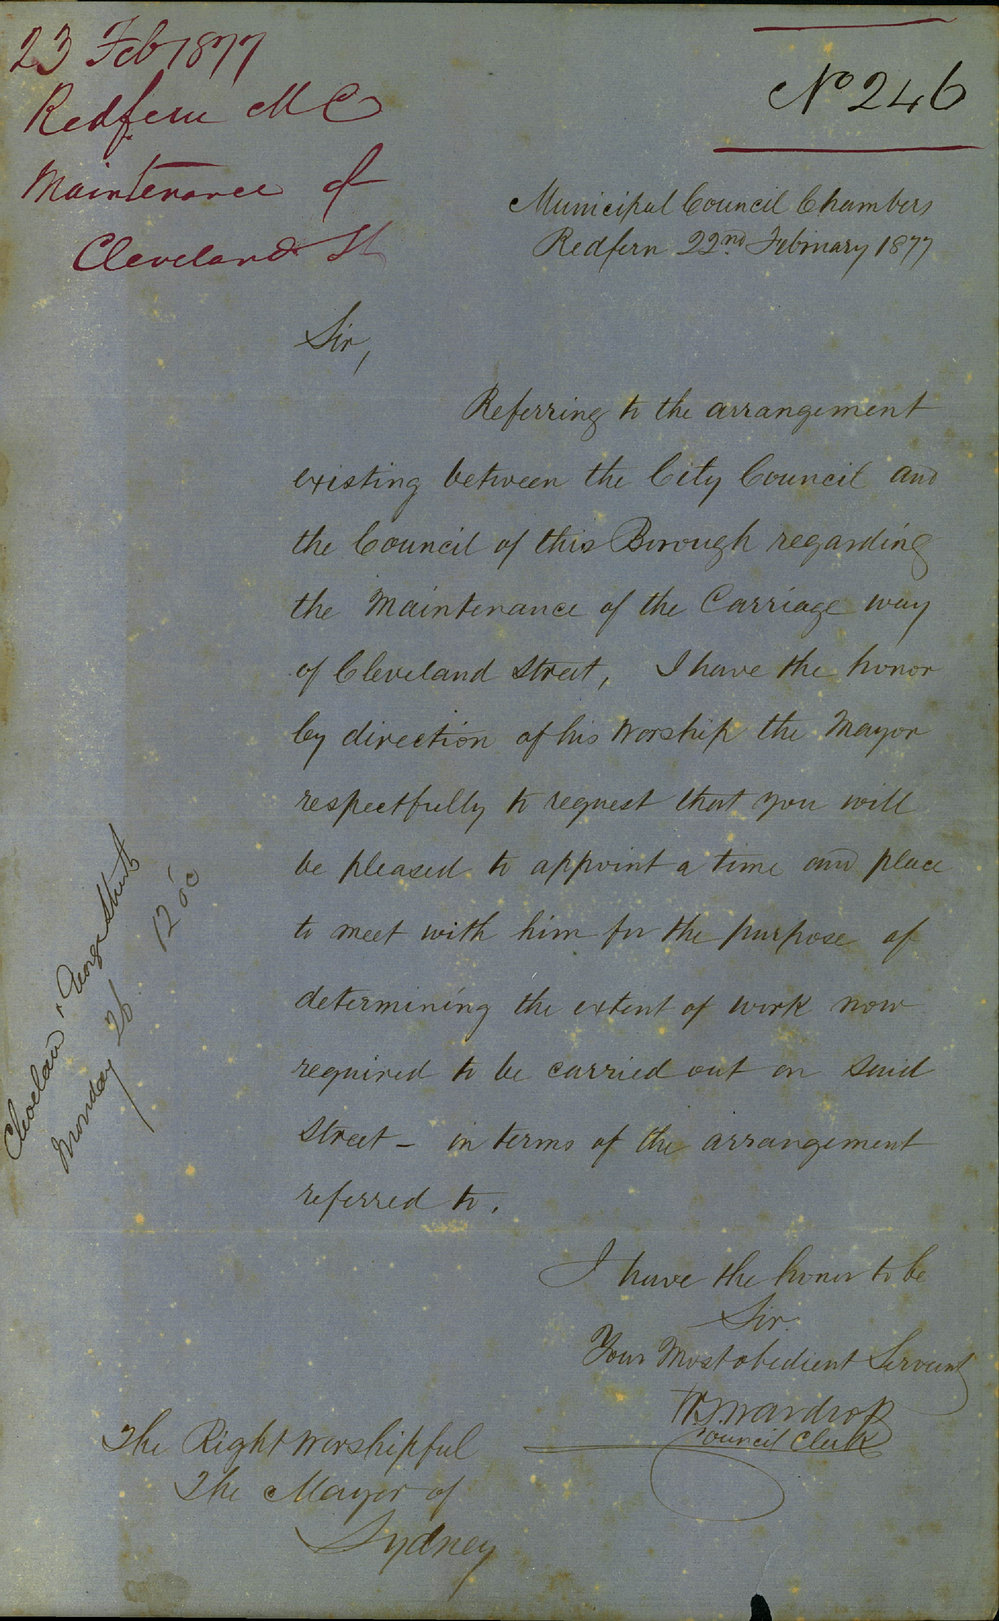 23 Feb 1877
Redfern M C
Maintenance of
Cleveland St
No 246
Municipal Council Chambers
Redfern 22nd February 1877
Sir,
Referring to the arrangement
existing between the City Council and
the Council of this Borough regarding
the Maintenance of the Carriage way
of Cleveland Street, I have the honor
by direction of his Worship the Mayor
respectfully to request that you will
be pleased to appoint a time and place
to meet with him for the purpose of
determining the extent of work now
required to be carried out on said
Street – in terms of the arrangement
referred to.
I have the honor to be
Sir.
Your Most obedient Servant
Wardrop
Council Clerk
The Right Worshipful
The Mayor of
Sydney
George Street
Monday 26 12 oc